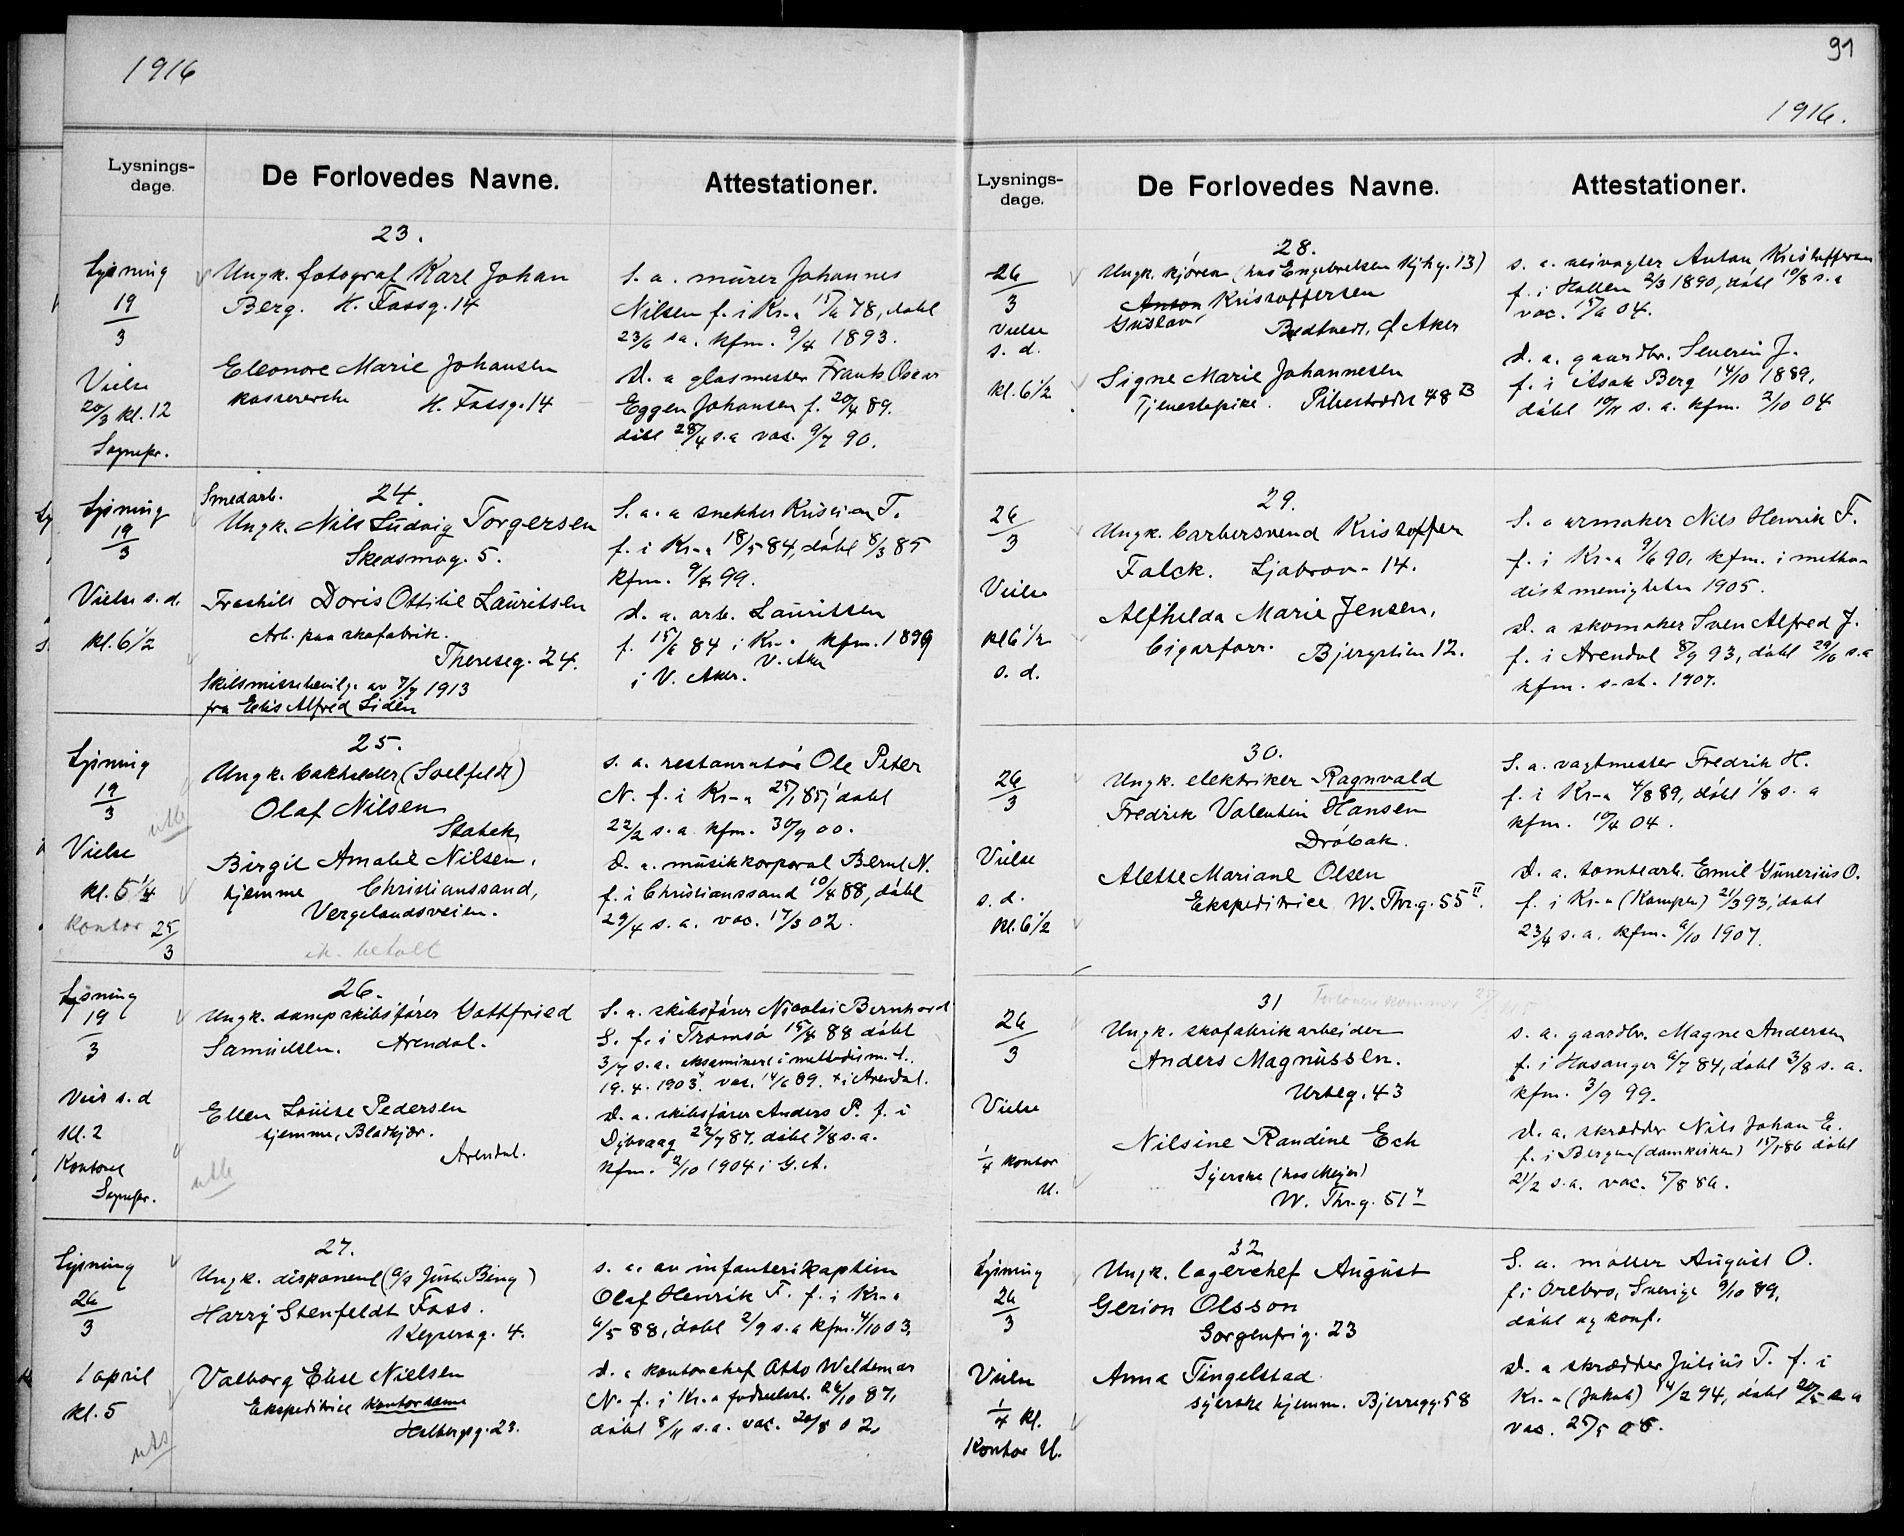 1916
Lysnings-
dage.
De Forlovedes Navne.
Attestationer.
23.
Lysning
19
3
Vielse
20/3 kl. 12
Sognepr.
Ungk. fotograf Karl Johan
Berg. H. Fossg. 14
Eleonore Marie Johansen
kassererske H. Fossg. 14
S. a. murer Johannes
Nilsen f. i Kr-a 78, døbt
23/6 s.a. kfm. 9/4 1893.
D. a glasmester Frants Oscar
Eggen Johansen f. 20/4 89.
døbt 28/4 s.a vac. 9/7 90.
24.
Lysning
19
3
Vielse s. d.
kl. 6 1/2
Smedarb.
Ungk. Nils Ludvig Torgersen
Skedsmog. 5.
Fraskilt Doris Ottilie Lauritsen
Arb. paa skofabrik.
Thereseg. 24.
Skilsmissebevilg. av 7/7 1913
fra Alfred Lidén
S. a. a snekker Kristian T.
f. i Kr-a 18/5 84, døbt 8/3 85
kfm. 99.
D. a. arb. Lauritsen
f. 15/6 84 i Kr-a kfm. 1899
i V. Aker. V. Aker
25.
Lysning
19
3
Vielse
kl. 5 1/4
kontor 25
3
Ungk. (Soelfeldt)
Olaf Nilsen
Stabek,
Birgit Amalie Nilsen,
hjemme Christianssand,
Vergelandsveien.
betalt
S. a. restauratør Ole Peter
N. f. i Kr-a 25/1 85, døbt
22/2 s. a. kfm. 30/9 00.
D. a. musikkorporal Bernt N.
f. i Christianssand 10/4 88, døbt
29/4 s. a. vac. 17/3 02.
26.
Lysning
19
3
s. d
kl. 2
Kontoret
Sognepr.
Ungk. dampskibsfører Gottfried
Samuelsen. Arendal.
Ellen Louise Pedersen
hjemme, Bladkjær.
Arendal.
S. a. skibsfører Nicolai Bernhard
S. f. i Tromsø 15/4 88 døbt
3/7 s. a. eksaminert i metodism. t.
19. 4. 1903. vac. 14/6 89. + i Arendal.
D. a. skibsfører Anders P. f. i
Dybvaag 22/7 87. døbt 7/8 s. a.
kfm. 2/10 1904 i G. A.
27.
Lysning
26
3
1 april
kl. 5
Ungk. disponent (a/s Just. Bing)
Harry Stenfeldt Foss.
Keysersg. 4.
Valborg Elise Nielsen
Ekspeditrice kontordame
Holbergsg. 23.
S. a. av infanterikaptein
Olaf Henrik F. f. i Kr-a
6/5 88, døbt 2/9 s. a kfm. 4/10 03.
D. a kontorchef Otto Weldemar
N. f. i Kr-a fødselsst. 26/10 87,
døbt 8/11 s. a. vac. 20/8 02.
91
1916.
Lysnings-
dage.
De Forlovedes Navne.
Attestationer.
28.
26
3
Vielse
s. d.
kl. 6 1/2
Ungk. kjører (hos Engebretsen 13)
Anton Kristoffersen
Gustav
Aker
Signe Marie Johannesen
Tjenestepike. Pilestrædet 48 B
S. a. Anton Kristoffersen
f. i 2/3 1890, døbt 10/8 s. a
vac. 04.
D. a. gaardbr. Severin J.
f. i Asak Berg 14/10 1889,
døbt 10/11 s. a. kfm. 2/10 04
29.
26
3
Vielse
kl 6 1/2
s. d.
Ungk. barbersvend Kristoffer
Falck. Ljabrov- 14.
Alfhilda Marie Jensen,
Cigarforr. Bjergstien 12.
S. a urmaker Nils Henrik F.
f. i Kr-a 9/6 90, kfm. i metho-
distmenigheten 1905.
D. a skomaker Sven Alfred J.
f. i Arendal 8/9 93, døbt 29/10 s. a
kfm. s. st. 1907.
30.
26
3
Vielse
s. d.
kl. 6 1/2
Ungk. elektriker Ragnvald
Fredrik Valentin Hansen
Drøbak.
Alette Mariane Olsen
Ekspeditrice W. Thr. g. 55 II.
S. a. vagtmester Fredrik H.
f. i Kr-a 4/3 89, døbt 1/8 s. a
kfm. 10/4 04.
D. a. tomtearb. Emil Gunerius O.
f. i Kr-a (Kampen) 21/3 93, døbt
23/4 s. a. kfm. 6/10 1907.
31
26
3
Vielse
1/4 kontor
U.
Ungk. skofabrikarbeider
Anders Magnussen.
Urteg. 43
Nilsine Randine Eck
Syerske (hos Meyer)
W. Thr. g. 51
S. a. gaardbr. Magne Andersen
f. i Hosanger 6/7 84, døbt 3/8 s. a.
kfm. 3/9 99.
D. a. skrædder Nils Johan E.
f. i Bergen (domkirken) 15/1 86 døbt
21/2 s. a. vac. 5/8 86.
32
Lysning
26
3
Vielse
1/4 kl.
Kontor U.
Ungk. lagerchef August
Gerion Olsson
Sorgenfrig. 23
Anna Tingelstad
syerske hjemm. Bjerregg. 58
S. a. møller August O.
f i Ørebro, Sverige 9/10 89,
døbt og konf.
D. a skrædder Julius T. f. i
Kr-a (Jakob) 14/2 94, døbt s. a
vac. 25/5 08.